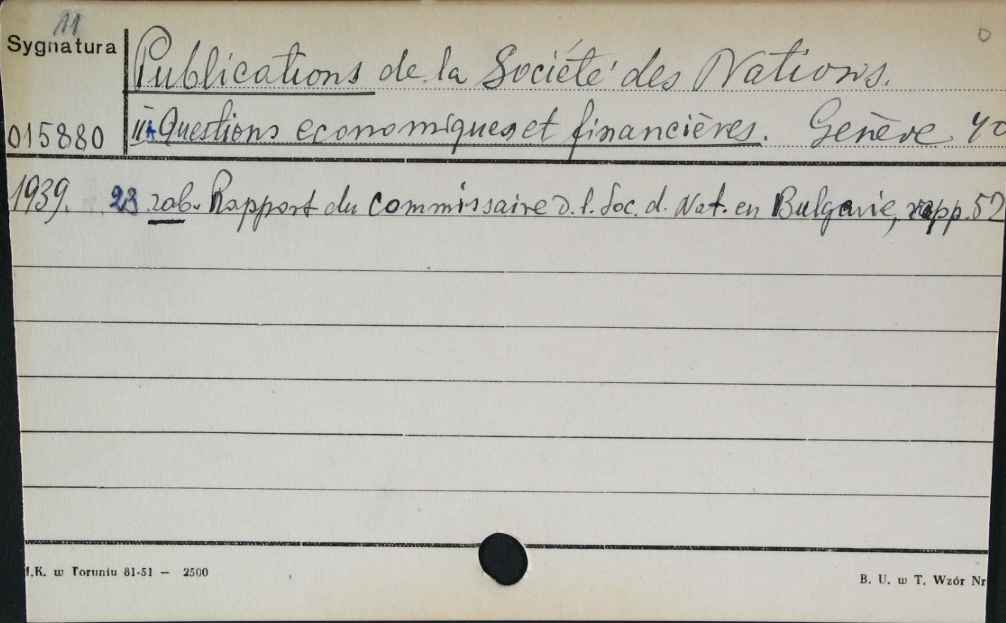 11
Sygnatura
Publications de la Société des Nations.
015880
II A Questions economiques et financières. Genève 40
1939. 23 rob. Rapport du Commissaire d. l. Soc. d. Nat. en Bulgarie, rapp. 52
I.K. w Toruniu 81-51 — 2500
B. U. w T. Wzór Nr